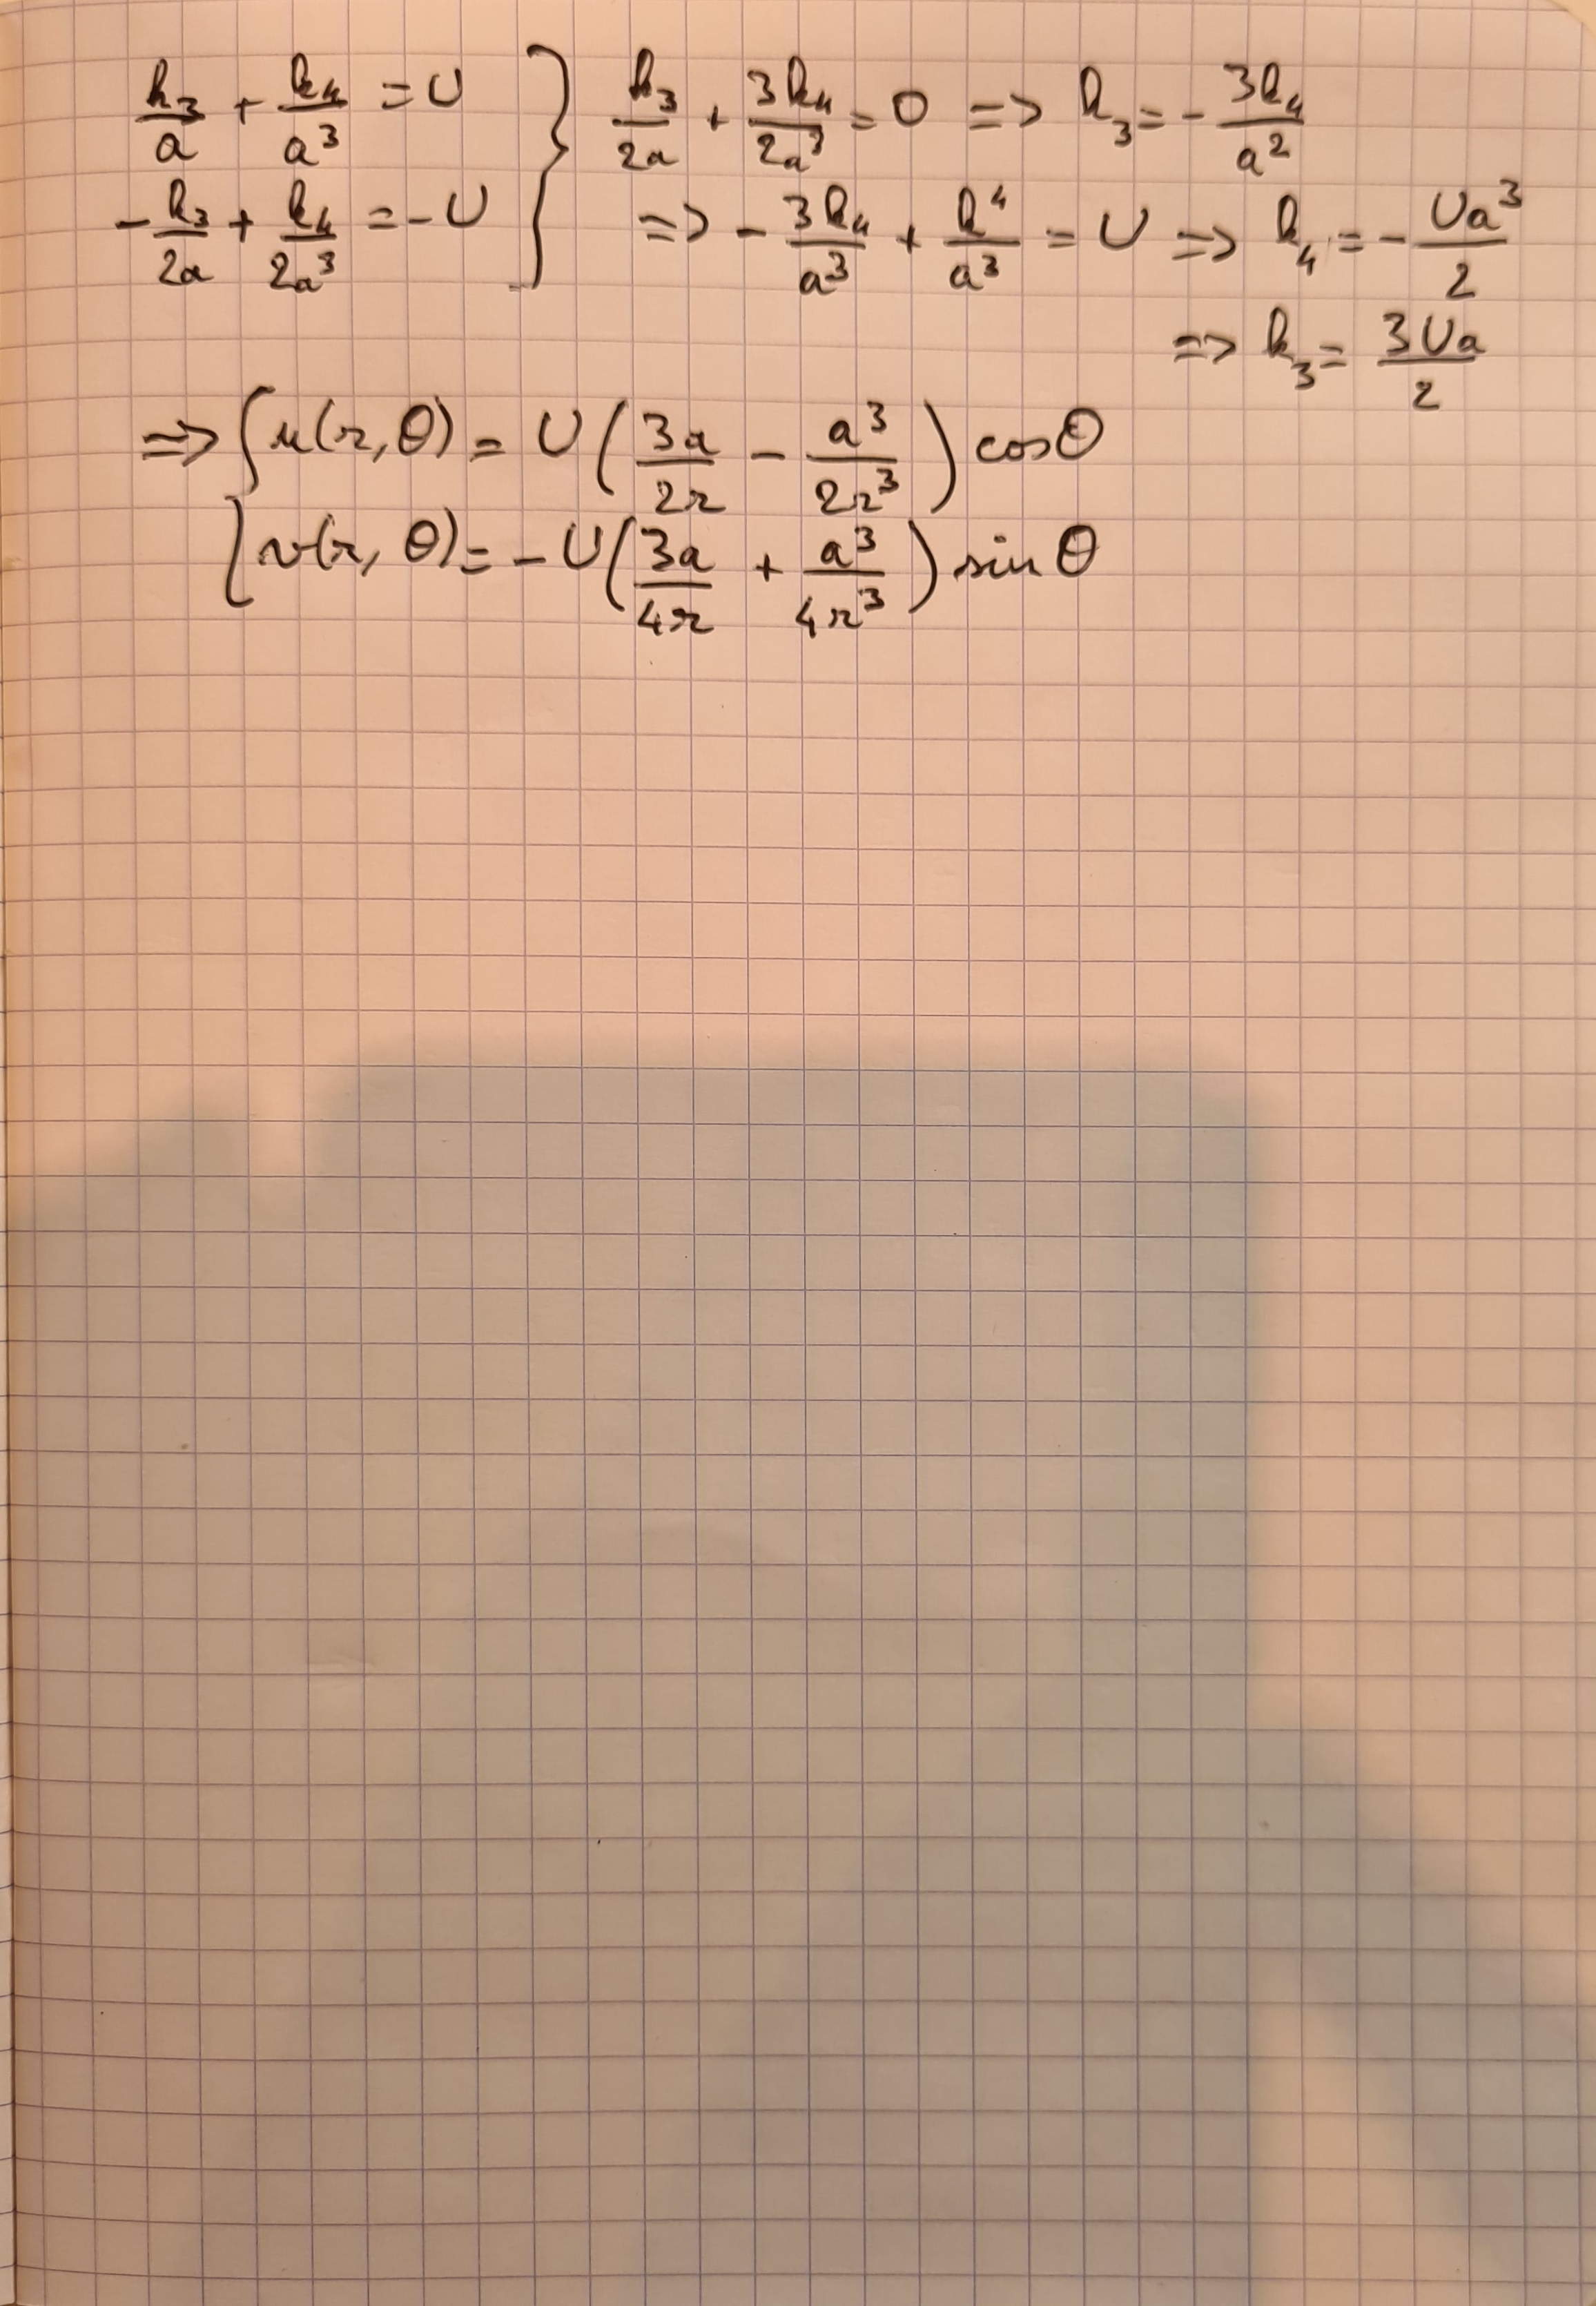 k₃/a + k₄/a³ = U } k₃/2a + 3k₄/2a³ = 0 => k₃ = - 3k₄/a²
- k₃/2a + k₄/2a³ = -U } => - 3k₄/a³ + k⁴/a³ = U => k₄ = - Ua³/2
=> k₃ = 3Ua/2
=> { u(r,θ) = U(3a/2r - a³/2r³) cosθ
{ v(r,θ) = -U(3a/4r + a³/4r³) sinθ